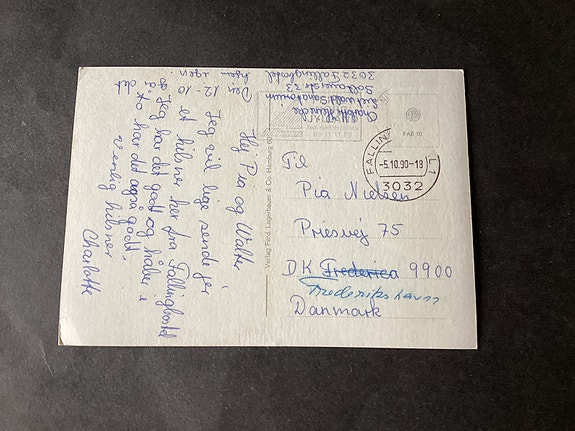 Hej Pia og Walter
Jeg vil lige sende jer
et hilsner her fra Fallingbostel
Jeg har det godt og håber i
to har det også godt.
venlig hilsner
Charlotte
Den
12-10
hjem igen.
3032 Fallingbostel
Verlag Ferd. Lagerbauer & Co. Hamburg
FALLIN
-5.10.90-18
3032
Til
Pia Nielsen
Priesvej 75
DK Fredericia 9900
Frederikshavn
Danmark